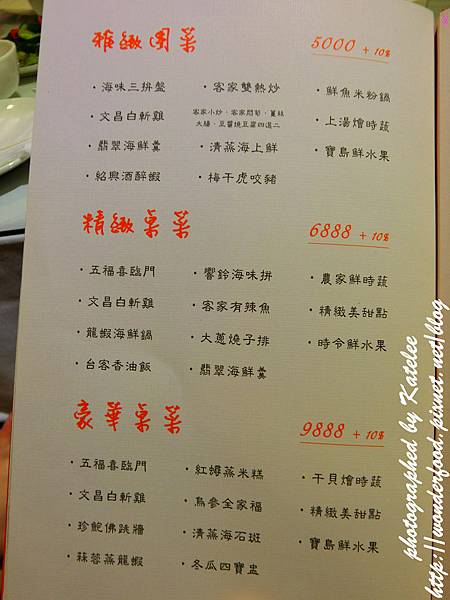 雅緻團菜 5000 + 10%
・海味三拼盤
・文昌白斬雞
・翡翠海鮮羹
・紹興酒醉蝦
・客家雙熱炒
客家小炒、客家悶筍、薑絲
大腸、豆醬燒豆腐四選二
・清蒸海上鮮
・梅干虎咬豬
・鮮魚米粉鍋
・上湯燴時蔬
・寶島鮮水果
精緻桌菜 6888 + 10%
・五福喜臨門
・文昌白斬雞
・龍蝦海鮮鍋
・台客香油飯
・響鈴海味拼
・客家有辣魚
・大蔥燒子排
・翡翠海鮮羹
・農家鮮時蔬
・精緻美甜點
・時令鮮水果
豪華桌菜 9888 + 10%
・五福喜臨門
・文昌白斬雞
・珍鮑佛跳牆
・蒜蓉蒸龍蝦
・紅蟳蒸米糕
・烏參全家福
・清蒸海石斑
・冬瓜四寶盅
・干貝燴時蔬
・精緻美甜點
・寶島鮮水果
photographed by Katelee
http://wonderfood.pixnet.net/blog